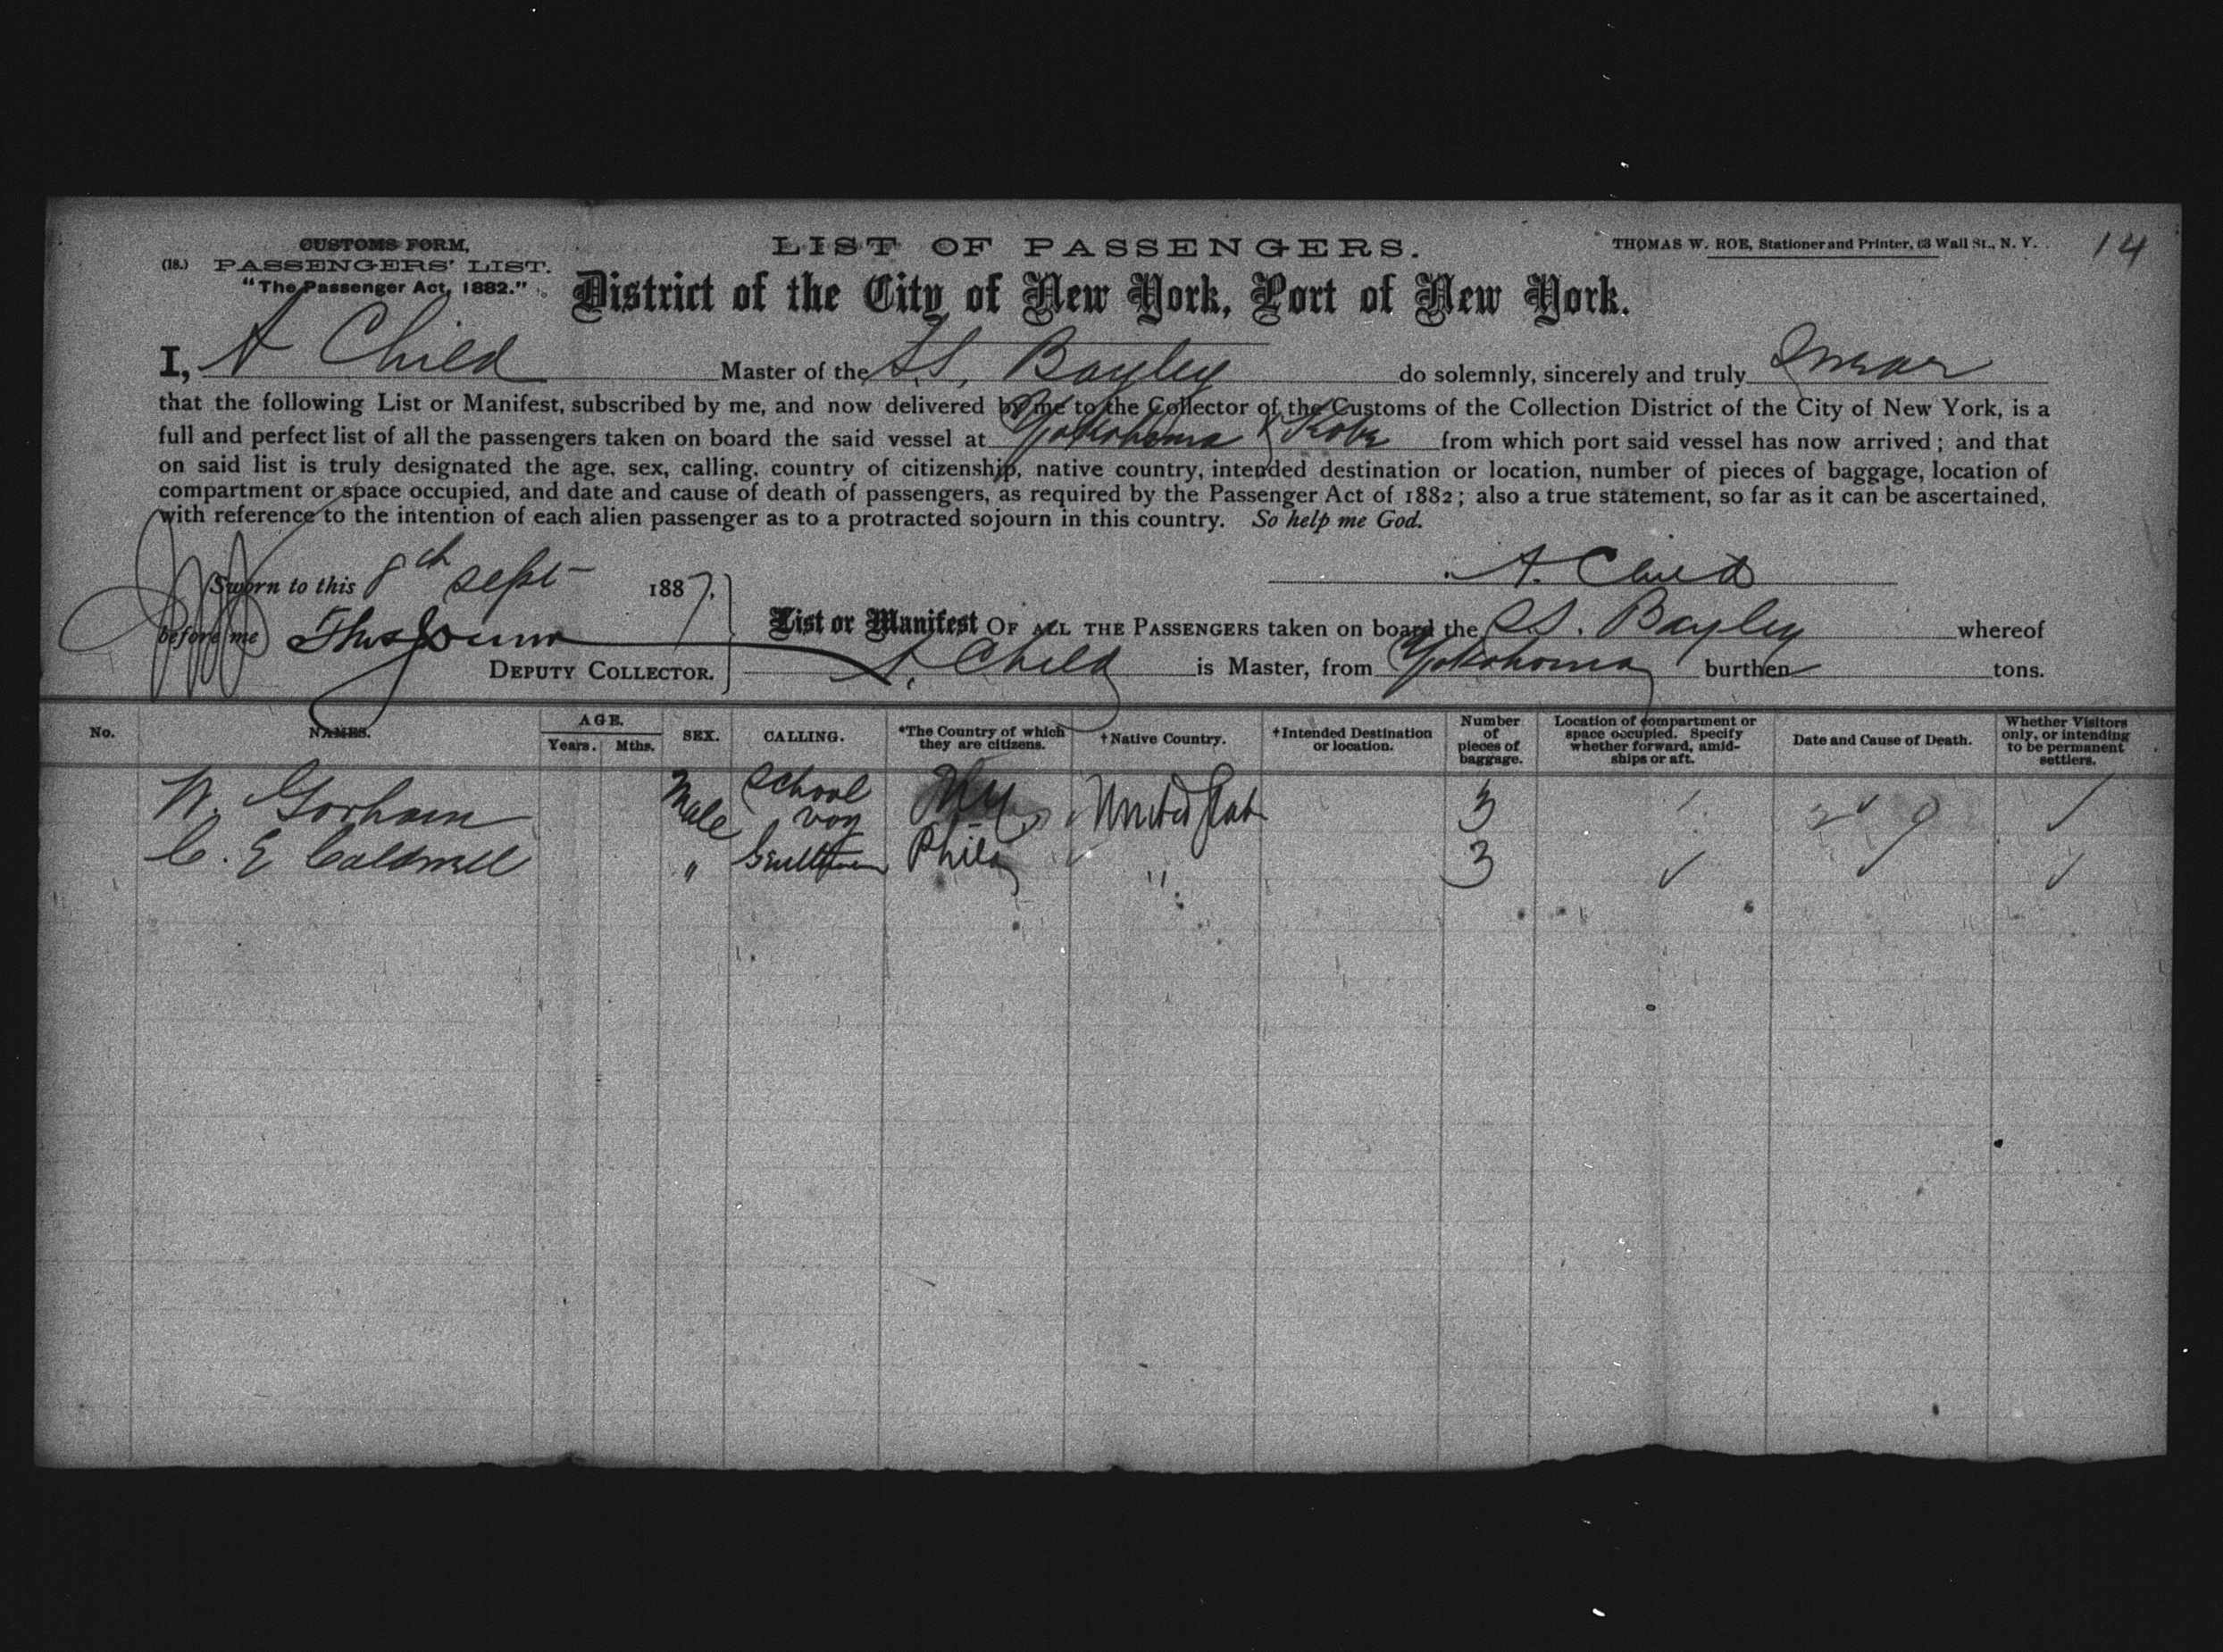 CUSTOMS FORM,
(18.) PASSENGERS' LIST.
"The Passenger Act, 1882."
LIST OF PASSENGERS.
THOMAS W. ROE, Stationer and Printer, 63 Wall St., N. Y.
14
District of the City of New York, Port of New York.
I, A Child Master of the S.S. Bayley do solemnly, sincerely and truly Swear
that the following List or Manifest, subscribed by me, and now delivered by me to the Collector of the Customs of the Collection District of the City of New York, is a
full and perfect list of all the passengers taken on board the said vessel at Yokohama & Kobe from which port said vessel has now arrived; and that
on said list is truly designated the age, sex, calling, country of citizenship, native country, intended destination or location, number of pieces of baggage, location of
compartment or space occupied, and date and cause of death of passengers, as required by the Passenger Act of 1882; also a true statement, so far as it can be ascertained,
with reference to the intention of each alien passenger as to a protracted sojourn in this country. So help me God.
Sworn to this 8th Sept 1887,
A. Child
before me
DEPUTY COLLECTOR.
List or Manifest OF ALL THE PASSENGERS taken on board the SS. Bayley whereof
A. Child is Master, from Yokohama burthen tons.
No. NAMES. AGE. Years. Mths. SEX. CALLING. *The Country of which they are citizens. †Native Country. †Intended Destination or location. Number of pieces of baggage. Location of compartment or space occupied. Specify whether forward, amidships or aft. Date and Cause of Death. Whether Visitors only, or intending to be permanent settlers.
W. Gorham Male School boy NY United Stat 3
C. E Caldwell " Gentleman Phila " 3